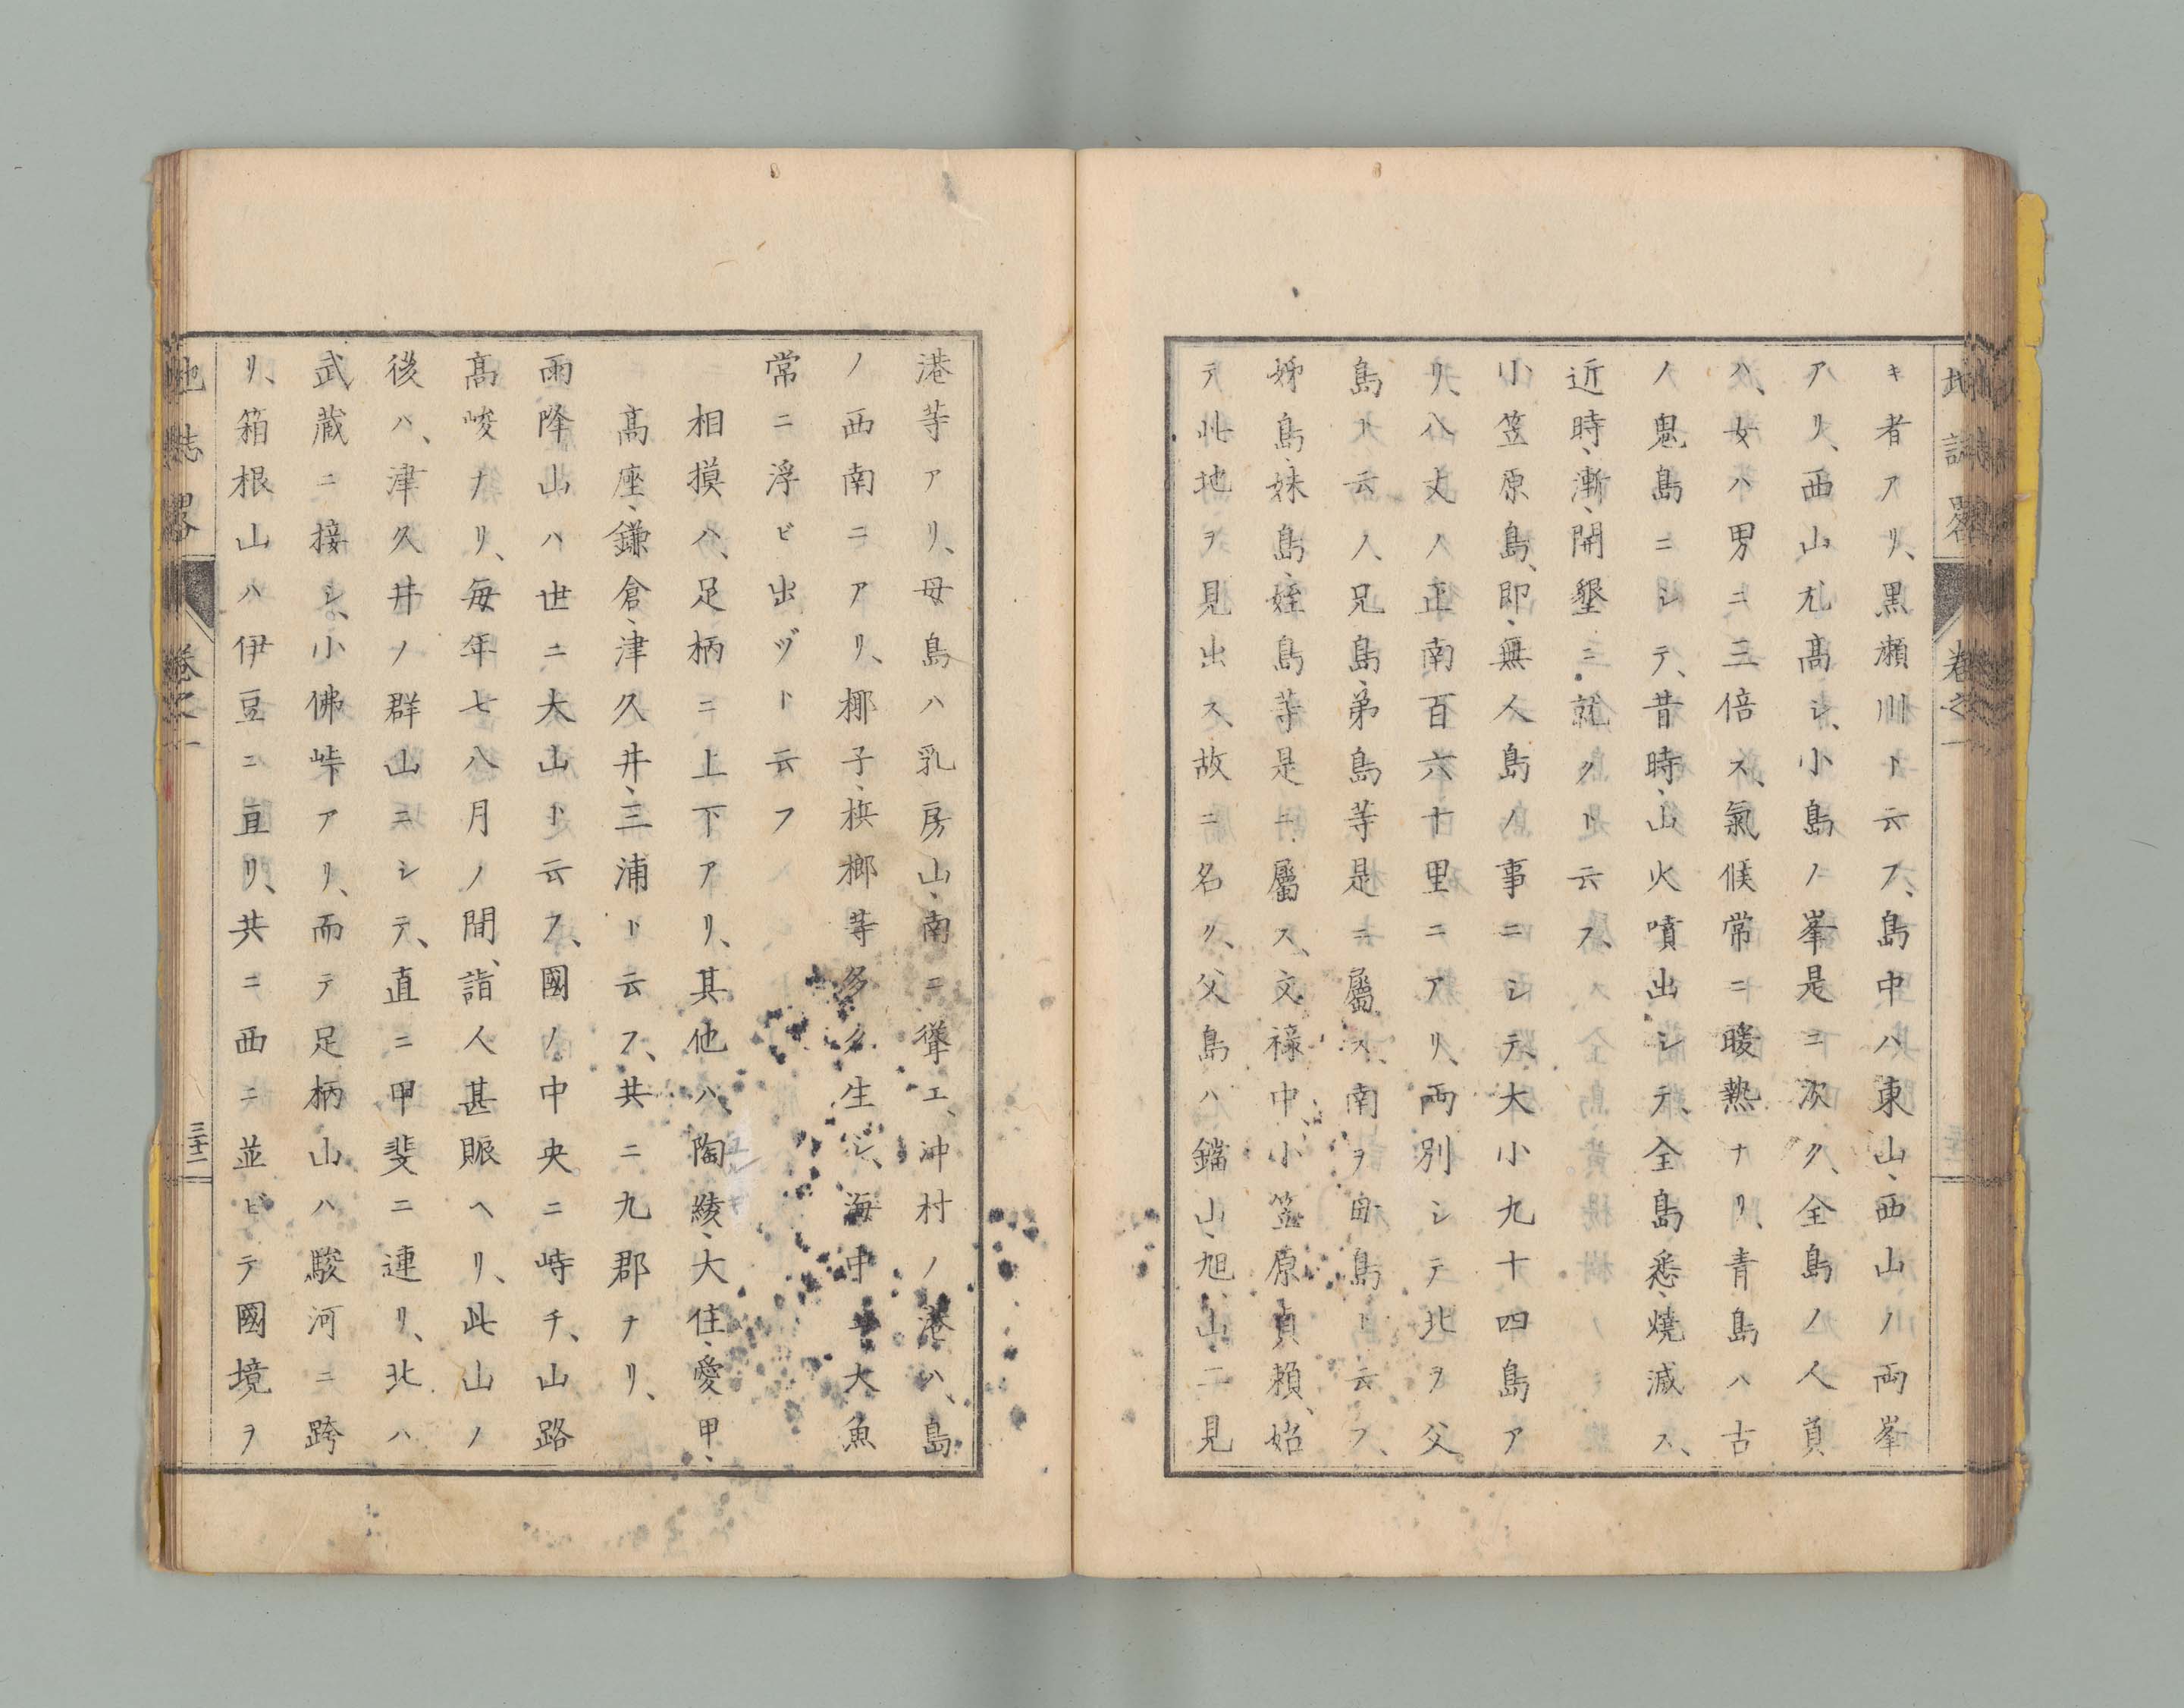 キ者アリ、黒瀬川ト云フ、島中ハ東山、西山ノ両峯
アリ、西山尤高シ、小島ノ峯是ニ次ク、全島ノ人員
ハ、女ハ男ニ三倍ス、氣候常ニ暖熱ナリ、青島ハ古
ノ鬼島ニシテ、昔時、山火噴出シテ、全島悉、燒滅ス、
近時、漸、開墾ニ就クト云フ、
小笠原島、即、無人島ノ事ニシテ、大小九十四島ア
リ、八丈ノ正南百六十里ニアリ、両別シテ北ヲ父
島ト云ヒ、兄島、弟島等是ニ屬ス、南ヲ母島ト云フ、
姊島、妹島、姪島等是ニ屬ス、文祿中、小笠原貞頼、始
テ此地ヲ見出ス、故ニ名ク、父島ハ鐺山、旭山、二見
港等アリ、母島ハ乳房山、南ニ聳エ、沖村ノ港ハ、島
ノ西南ニアリ、椰子、檳榔等多ク生シ、海中ニ大魚
常ニ浮ビ出ヅト云フ
相摸ハ、足柄ニ上下アリ、其他ハ、陶綾、大住、愛甲、
高座、鎌倉、津久井、三浦ト云フ、共ニ九郡ナリ、
雨降山ハ世ニ大山ト云フ、國ノ中央ニ峙チ、山路
高峻ナリ、毎年七八月ノ間、詣人甚賑ヘリ、此山ノ
後ハ、津久井ノ群山ニシテ、直ニ甲斐ニ連リ、北ハ
武蔵ニ接シ、小佛峠アリ、而テ足柄山ハ駿河ニ跨
リ、箱根山ハ伊豆ニ亘リ、共ニ西ニ並ビテ國境ヲ
地誌畧 卷之一 三十二